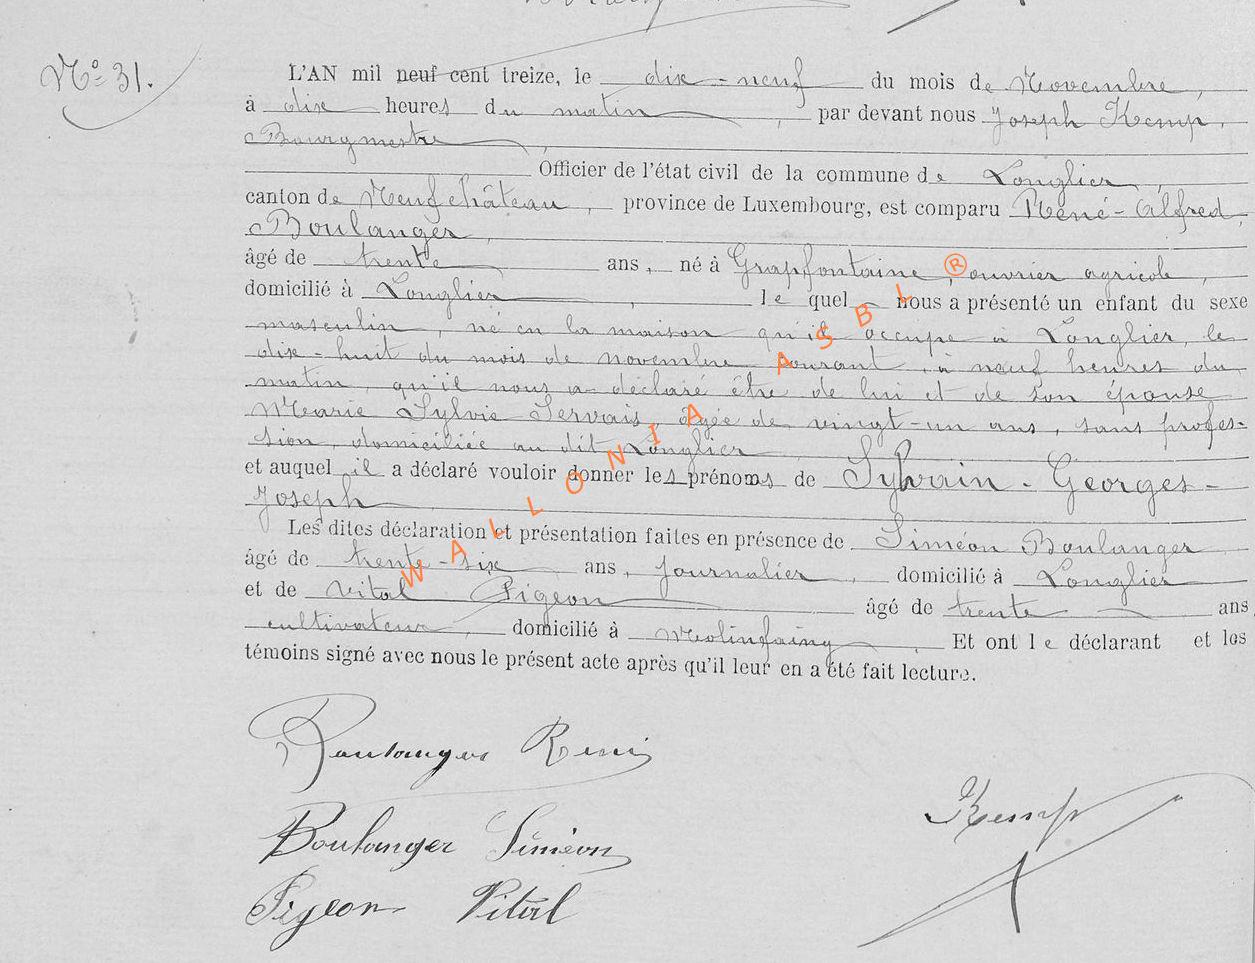 N° 31.
L'AN mil neuf cent treize, le dix-neuf du mois de Novembre,
à dix heures du matin, par devant nous Joseph Kemp,
Bourgmestre,
Officier de l'état civil de la commune de Longlier,
canton de Neufchâteau, province de Luxembourg, est comparu René-Alfred,
Boulanger,
âgé de trente ans, né à Grapfontaine, ouvrier agricole,
domicilié à Longlier, le quel nous a présenté un enfant du sexe
masculin, né en la maison qu'il occupe à Longlier, le
dix-huit du mois de novembre courant, à neuf heures du
matin, qu'il nous a déclaré être de lui et de son épouse
Marie Sylvie Servais, âgée de vingt-un ans, sans profes-
sion, domiciliée au dit Longlier,
et auquel il a déclaré vouloir donner les prénoms de Sylvain-Georges-
Joseph
Les dites déclaration et présentation faites en présence de Siméon Boulanger
âgé de trente-six ans, journalier, domicilié à Longlier
et de Vital Pigeon âgé de trente ans
cultivateur, domicilié à Molinfaing. Et ont le déclarant et les
témoins signé avec nous le présent acte après qu'il leur en a été fait lecture.
Boulanger René
Kemp
Boulanger Siméon
Pigeon Vital
WALLONIA ASBL ®